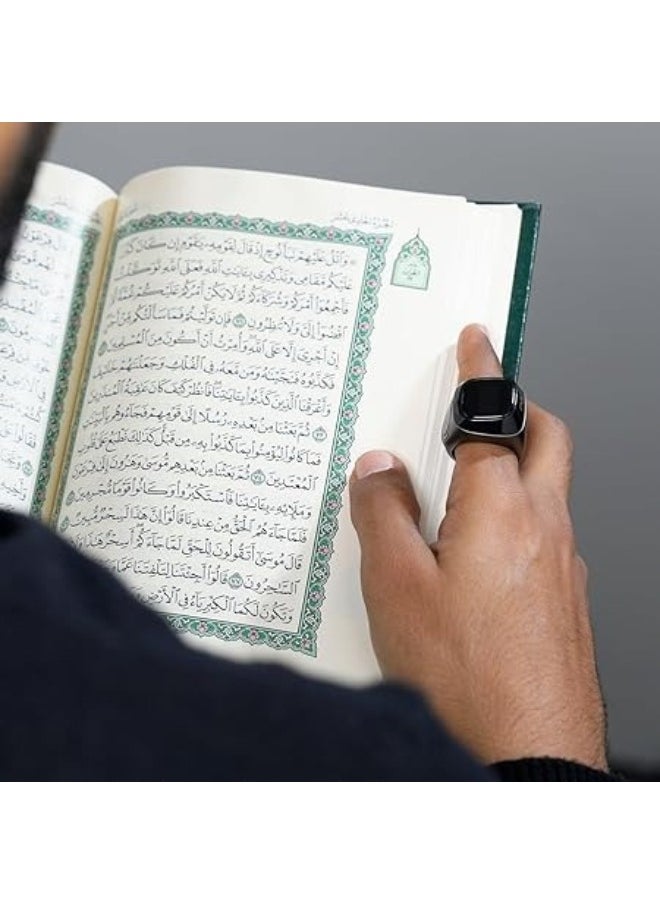 الجزء الحادي عشر
۞ وَٱتۡلُ عَلَيۡهِمۡ نَبَأَ نُوحٍ إِذۡ قَالَ لِقَوۡمِهِۦ يَٰقَوۡمِ إِن كَانَ كَبُرَ
عَلَيۡكُم مَّقَامِي وَتَذۡكِيرِي بِـَٔايَٰتِ ٱللَّهِ فَعَلَى ٱللَّهِ تَوَكَّلۡتُ
فَأَجۡمِعُوٓاْ أَمۡرَكُمۡ وَشُرَكَآءَكُمۡ ثُمَّ لَا يَكُنۡ أَمۡرُكُمۡ عَلَيۡكُمۡ غُمَّةٗ ثُمَّ
ٱقۡضُوٓاْ إِلَيَّ وَلَا تُنظِرُونِ ٧١ فَإِن تَوَلَّيۡتُمۡ فَمَا سَأَلۡتُكُم مِّنۡ أَجۡرٍ
إِنۡ أَجۡرِيَ إِلَّا عَلَى ٱللَّهِ وَأُمِرۡتُ أَنۡ أَكُونَ مِنَ ٱلۡمُسۡلِمِينَ
فَكَذَّبُوهُ فَنَجَّيۡنَٰهُ وَمَن مَّعَهُۥ فِي ٱلۡفُلۡكِ وَجَعَلۡنَٰهُمۡ خَلَٰٓئِفَ
وَأَغۡرَقۡنَا ٱلَّذِينَ كَذَّبُواْ بِـَٔايَٰتِنَا فَٱنظُرۡ كَيۡفَ كَانَ عَٰقِبَةُ ٱلۡمُنذَرِينَ
٧٣ ثُمَّ بَعَثۡنَا مِنۢ بَعۡدِهِۦ رُسُلًا إِلَىٰ قَوۡمِهِمۡ فَجَآءُوهُم بِٱلۡبَيِّنَٰتِ
فَمَا كَانُواْ لِيُؤۡمِنُواْ بِمَا كَذَّبُواْ بِهِۦ مِن قَبۡلُۚ كَذَٰلِكَ نَطۡبَعُ عَلَىٰ قُلُوبِ
ٱلۡمُعۡتَدِينَ ٧٤ ثُمَّ بَعَثۡنَا مِنۢ بَعۡدِهِم مُّوسَىٰ وَهَٰرُونَ إِلَىٰ فِرۡعَوۡنَ
وَمَلَإِيْهِۦ بِـَٔايَٰتِنَا فَٱسۡتَكۡبَرُواْ وَكَانُواْ قَوۡمٗا مُّجۡرِمِينَ
فَلَمَّا جَآءَهُمُ ٱلۡحَقُّ مِنۡ عِندِنَا قَالُوٓاْ إِنَّ هَٰذَا لَسِحۡرٞ مُّبِينٞ
قَالَ مُوسَىٰٓ أَتَقُولُونَ لِلۡحَقِّ لَمَّا جَآءَكُمۡۖ أَسِحۡرٌ هَٰذَا وَلَا
ٱلسَّٰحِرُونَ ٧٧ قَالُوٓاْ أَجِئۡتَنَا لِتَلۡفِتَنَا عَمَّا
وَتَكُونَ لَكُمَا ٱلۡكِبۡرِيَآءُ فِي ٱلۡأَرۡضِ